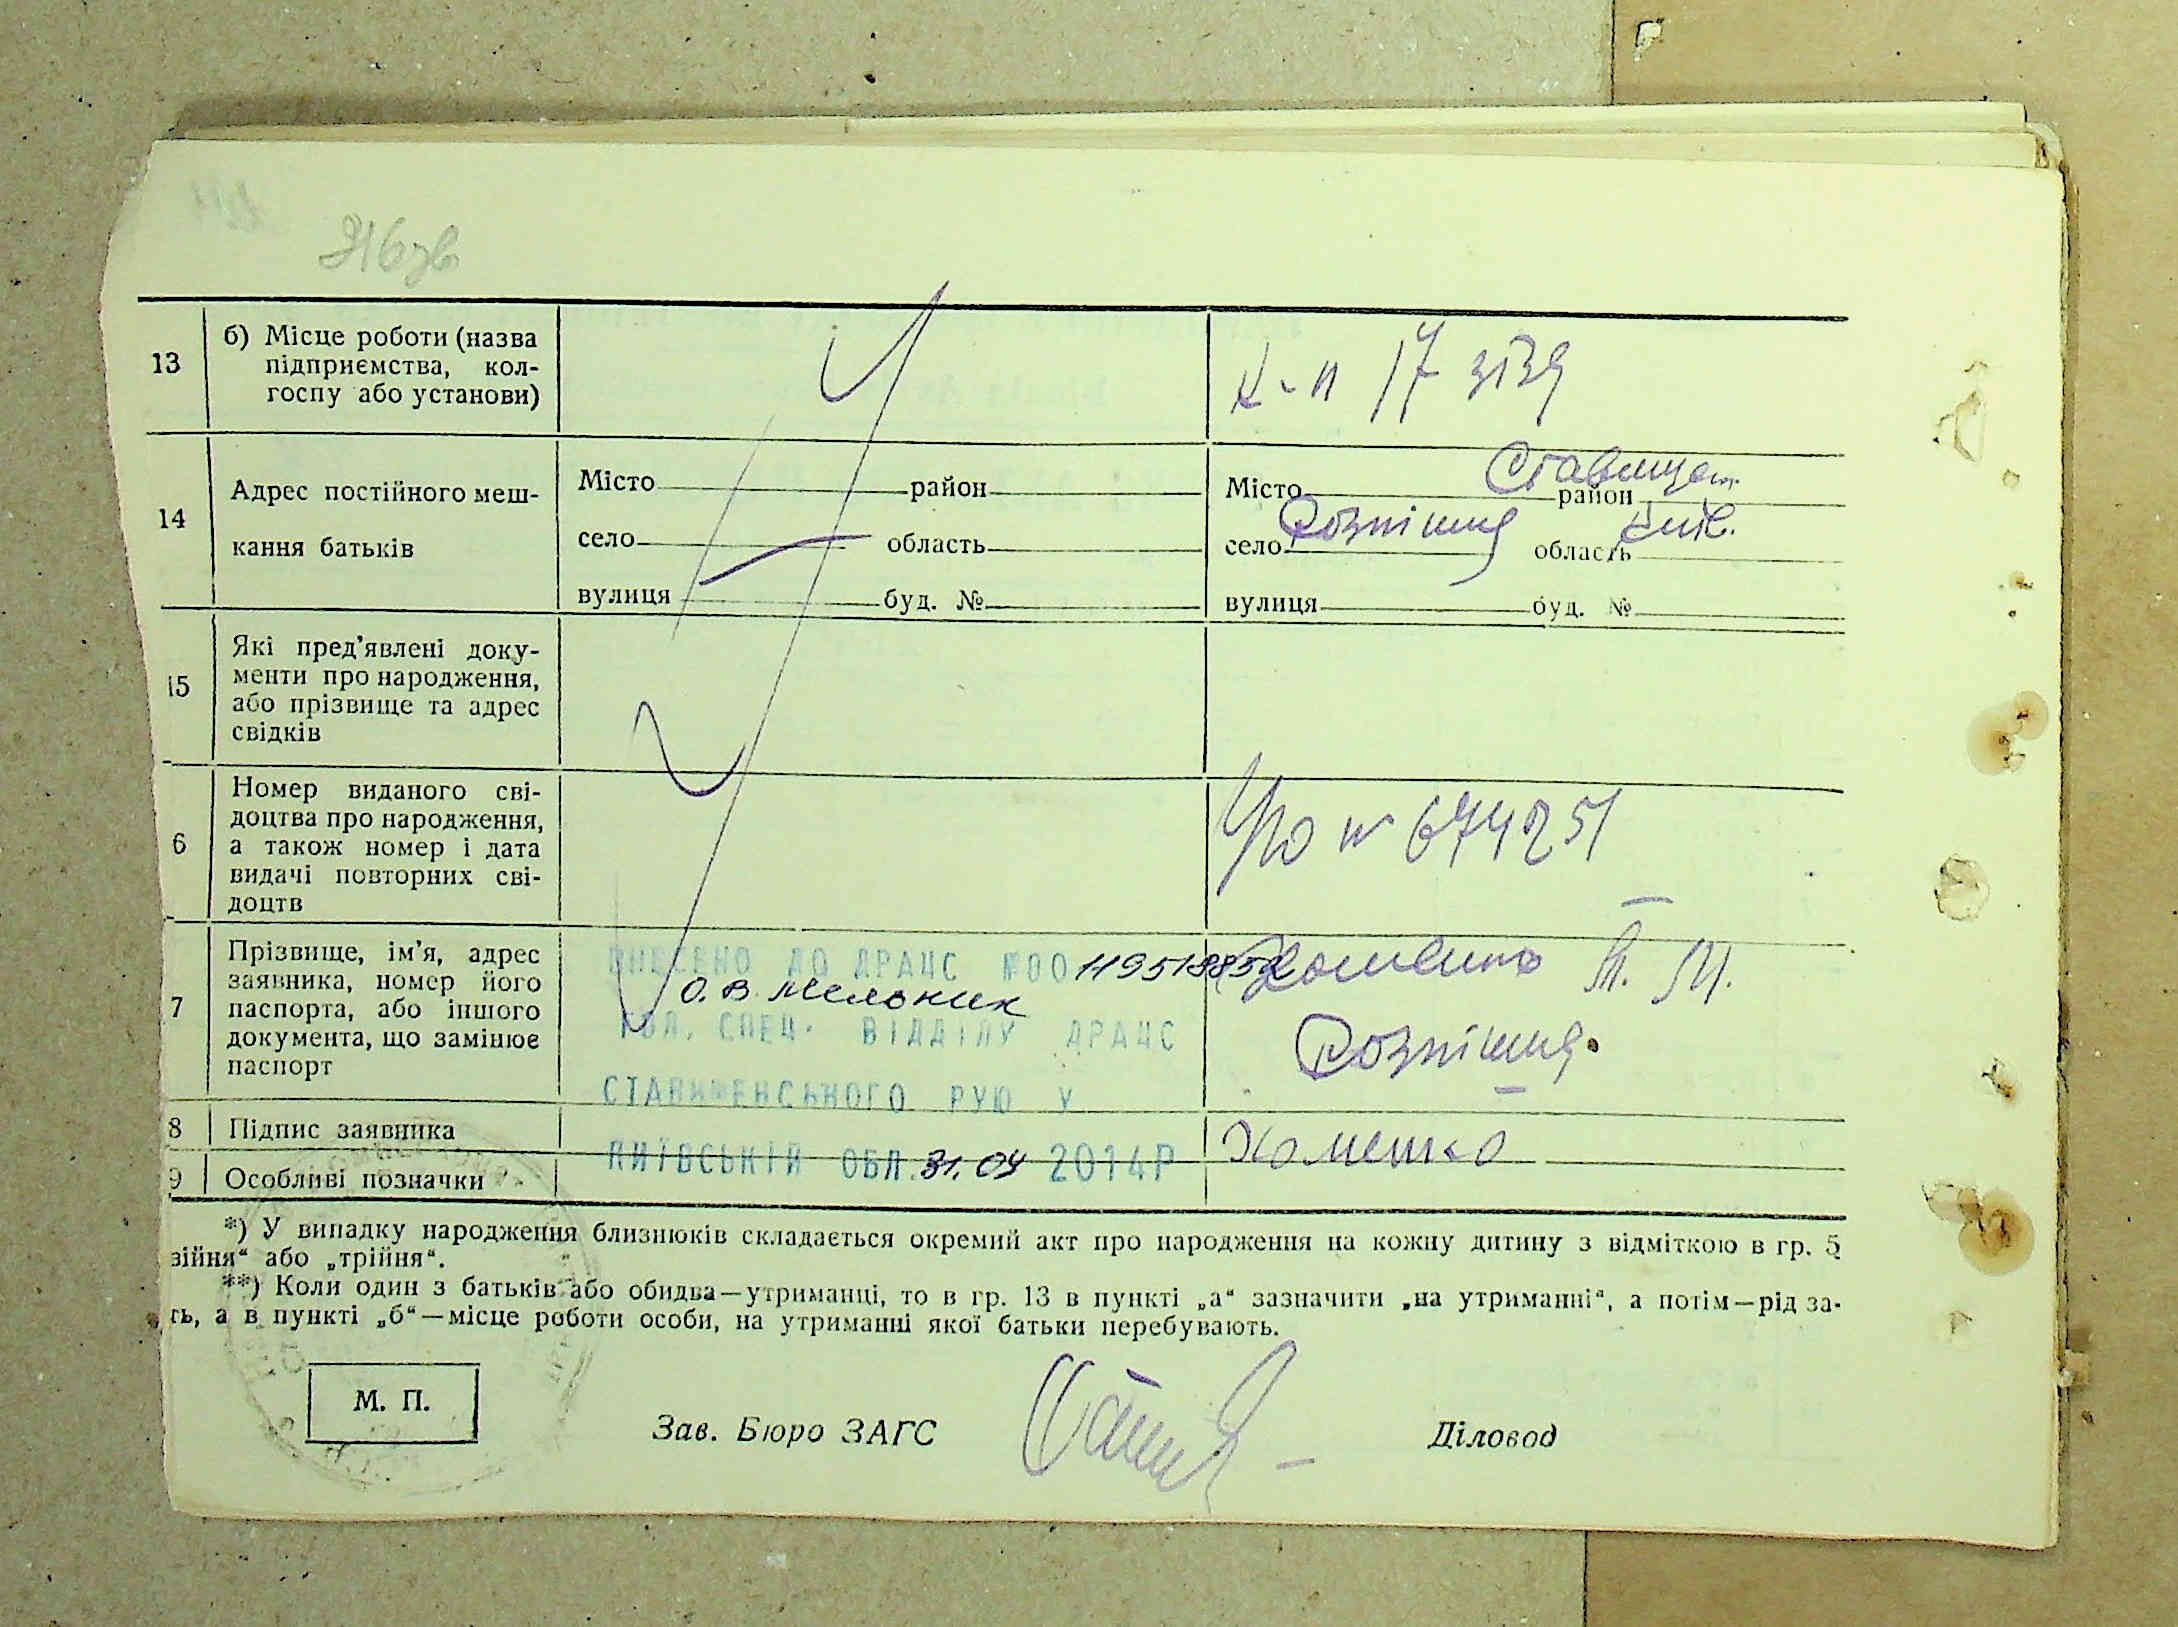 316зв
13
б) Місце роботи (назва
підприємства, кол-
госпу або установи)
к-п 17 зізд
14
Адрес постійного меш-
кання батьків
Місто район
село область
вулиця буд. №
Місто район Ставищан.
село Розкішна область Київ.
вулиця буд. №
15
Які пред’явлені доку-
менти про народження,
або прізвище та адрес
свідків
6
Номер виданого сві-
доцтва про народження,
а також номер і дата
видачі повторних сві-
доцтв
№ 674251
7
Прізвище, ім’я, адрес
заявника, номер його
паспорта, або іншого
документа, що замінює
паспорт
ВНЕСЕНО ДО ДРАЦС №00119518852
О.В. Мельник
ГОЛ. СПЕЦ. ВІДДІЛУ ДРАЦС
СТАВИЩЕНСЬКОГО РУЮ У
КИЇВСЬКІЙ ОБЛ. 31.04 2014Р
Розкішна.
8
Підпис заявника
Хоменко
9
Особливі позначки
*) У випадку народження близнюків складається окремий акт про народження на кожну дитину з відміткою в гр. 5
війня“ або „трійня“.
**) Коли один з батьків або обидва—утриманці, то в гр. 13 в пункті „а“ зазначити „на утриманні“, а потім—рід за-
ть, а в пункті „б“—місце роботи особи, на утриманні якої батьки перебувають.
М. П.
Зав. Бюро ЗАГС
Діловод